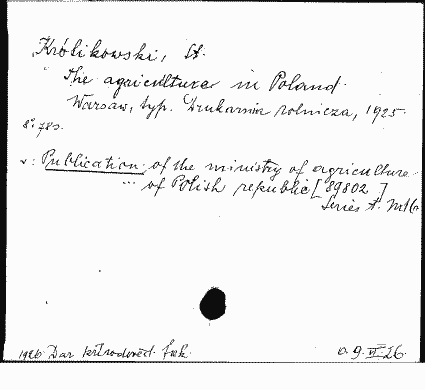 Królikowski, St.
The agriculture in Poland.
Warsaw, typ. Drukarnia rolnicza, 1925.
8° 78s.
v: Publication of the ministry of agriculture
... of Polish republic [89802]
Series A. № 16
1926 Dar
9.VI.26.